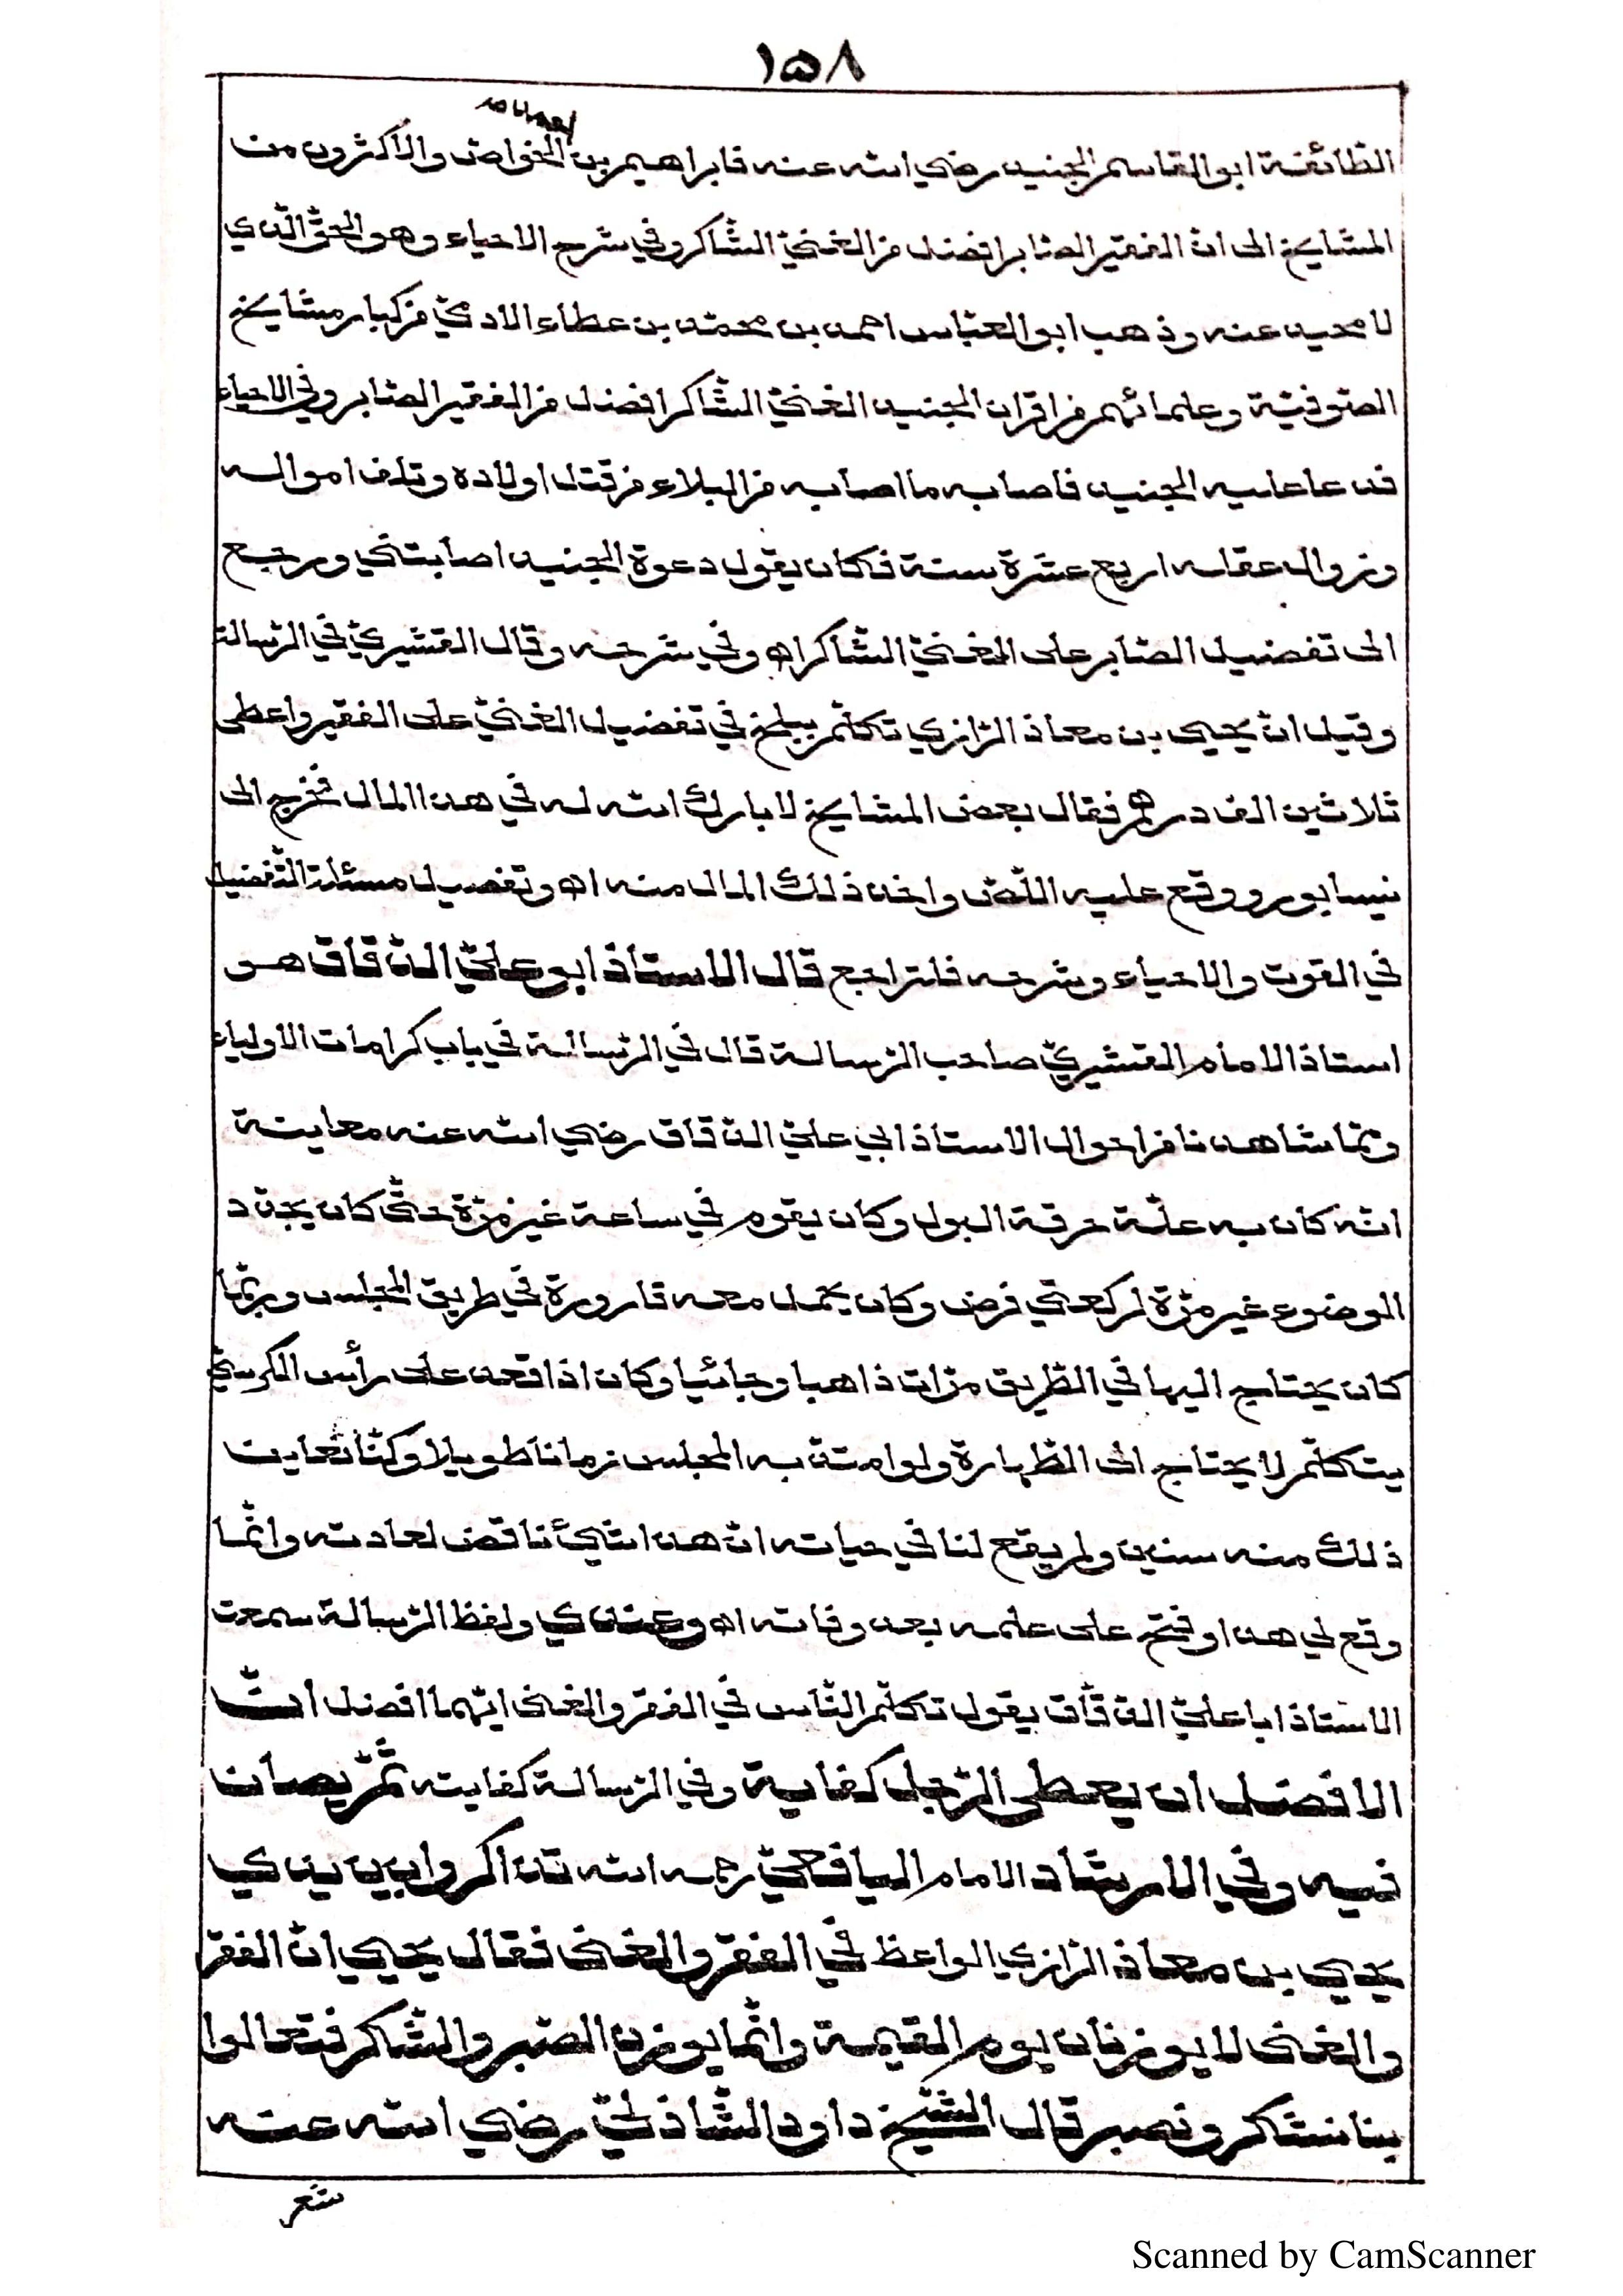 ١٥٨
احمد
الطّائفة ابو القاسم الجنيد رضي الله عنه فابراهيم بن الخواص والاكثرون من
المشايخ الى انّ الفقير الصّابر افضل من الغنيّ الشّاكر وفي شرح الاحياء وهو الحقّ الّذي
لا محيد عنه وذهب ابو العبّاس احمد بن محمّد بن عطاء الادميّ من كبار مشايخ
الصّوفيّة وعلمائهم من اقران الجنيد الغنيّ الشّاكر افضل من الفقير الصّابر وفي الاحياء
فدعا عليه الجنيد فاصابه ما اصابه من البلاء من قتل اولاده وتلف امواله
وزوال عقله اربع عشرة سنة فكان يقول دعوة الجنيد اصابتني ورجع
الى تفضيل الصّابر على الغنيّ الشّاكر اه وفي شرحه وقال القشيريّ في الرّسالة
وقيل انّ يحيى بن معاذ الرّازي تكلّم ببلخ في تفضيل الغنيّ على الفقير واعطي
ثلاثين الف درهم فقال بعض المشايخ لا بارك الله له في هذا المال فخرج الى
نيسابور ووقع عليه اللّصّ واخذ ذلك المال منه اه وتفصيل مسئلة التّفضيل
في القوت والاحياء وشرحه فلتراجع قال الاستاذ ابو عليّ الدّقّاق هو
استاذ الامام القشيريّ صاحب الرّسالة قال في الرّسالة في باب كرامات الاولياء
وممّا شاهدنا من احوال الاستاذ ابي عليّ الدّقّاق رضي الله عنه معاينة
انّه كان به علّة حرقة البول وكان يقوم في ساعة غير مرّة حتّى كان يجدّد
الوضوء غير مرّة لركعتي فرض وكان يحمل معه قارورة في طريق المجلس وربّما
كان يحتاج اليها في الطّريق مرّات ذاهبا وجائيا وكان اذا قعد على رأس الكرسيّ
يتكلّم لا يحتاج الى الطّهارة ولو امتدّ به المجلس زمانا طويلا وكنّا نعاين
ذلك منه سنين ولم يقع لنا في حياته انّ هذا شيئ ناقض لعادته وانّما
وقع لي هذا وفتح على علمه بعد وفاته اه وعندي ولفظ الرّسالة سمعت
الاستاذ ابا عليّ الدّقّاق يقول تكلّم النّاس في الفقر والغنى ايّهما افضل انّ
الافضل ان يعطى الرّجل كفاية وفي الرّسالة كفايته ثمّ يصان
فيه وفي الارشاد الامام اليافعيّ رحمه الله تذاكروا بين يدي
يحيى بن معاذ الرّازي الواعظ في الفقر والغنى فقال يحيى انّ الفقر
والغنى لا يوزنان يوم القيمة وانّما يوزن الصّبر والشّاكر فتعالوا
بنا نشاكر ونصبر قال الشّيخ داود الشّاذليّ رضي الله عنه
شعر
Scanned by CamScanner